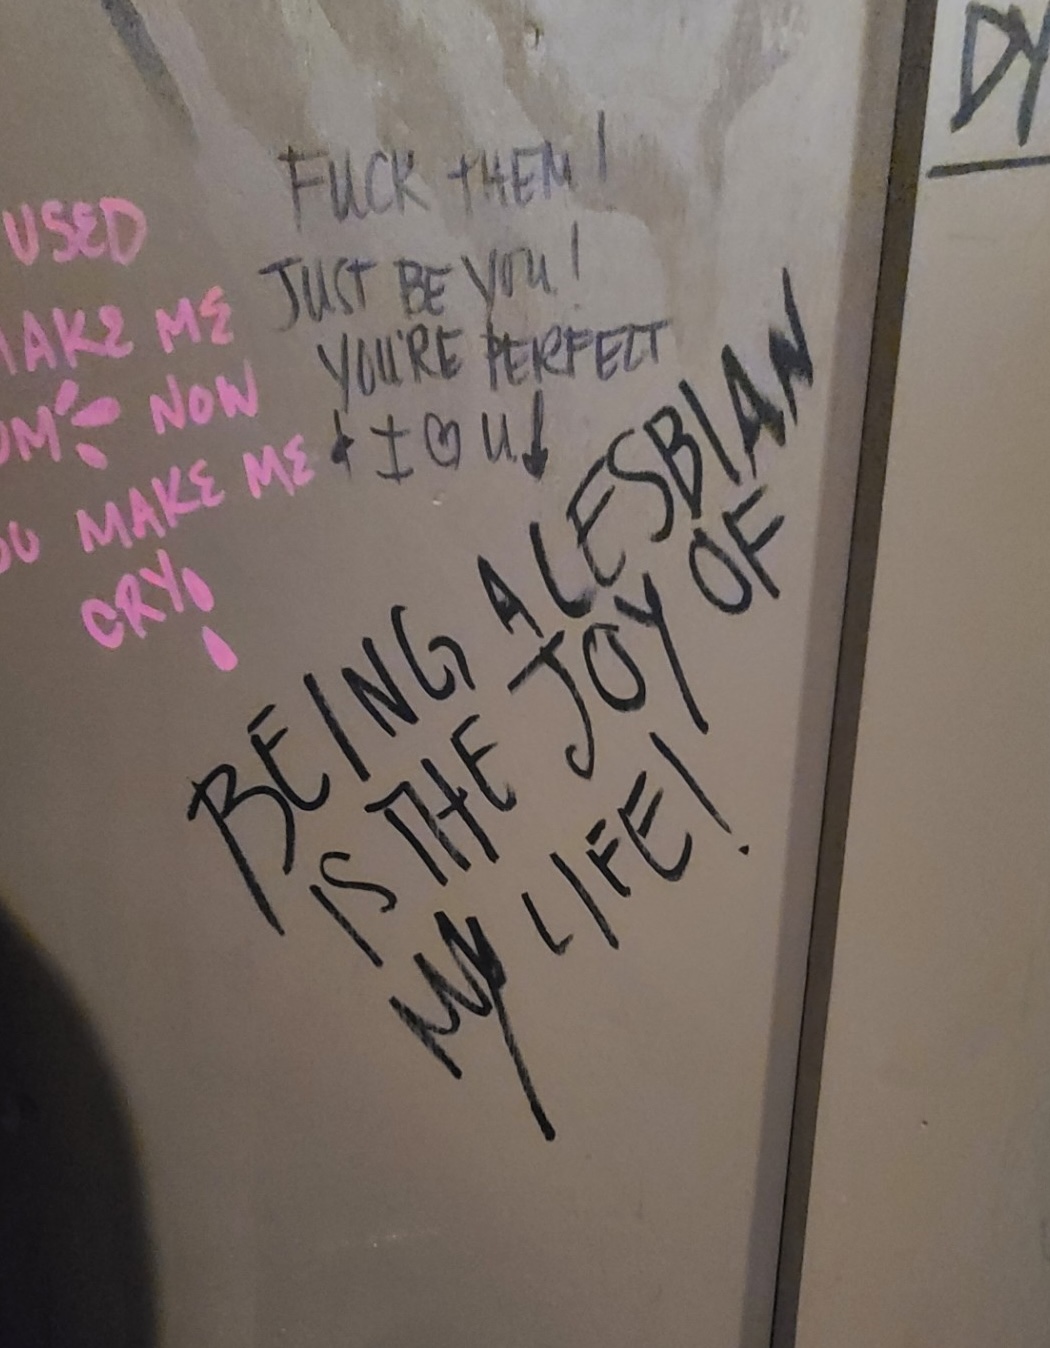 USED
MAKE ME
NOW
MAKE ME
CRY
FUCK THEM!
JUST BE YOU!
YOU'RE PERFECT
+ I ♡ U
BEING A LESBIAN
IS THE JOY OF
MY LIFE!
DY